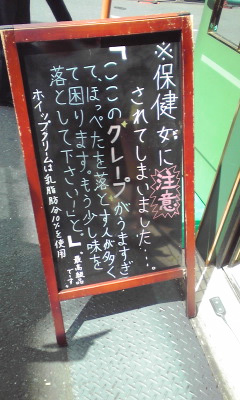 ※保健所に注意
されてしまいました…。
「ここのクレープがうますぎ
て、ほっぺたを落とす人が多く
て困ります。もう少し味を
落として下さい!」と。
ホイップクリームは乳脂肪分10%を使用
最高級品
です。